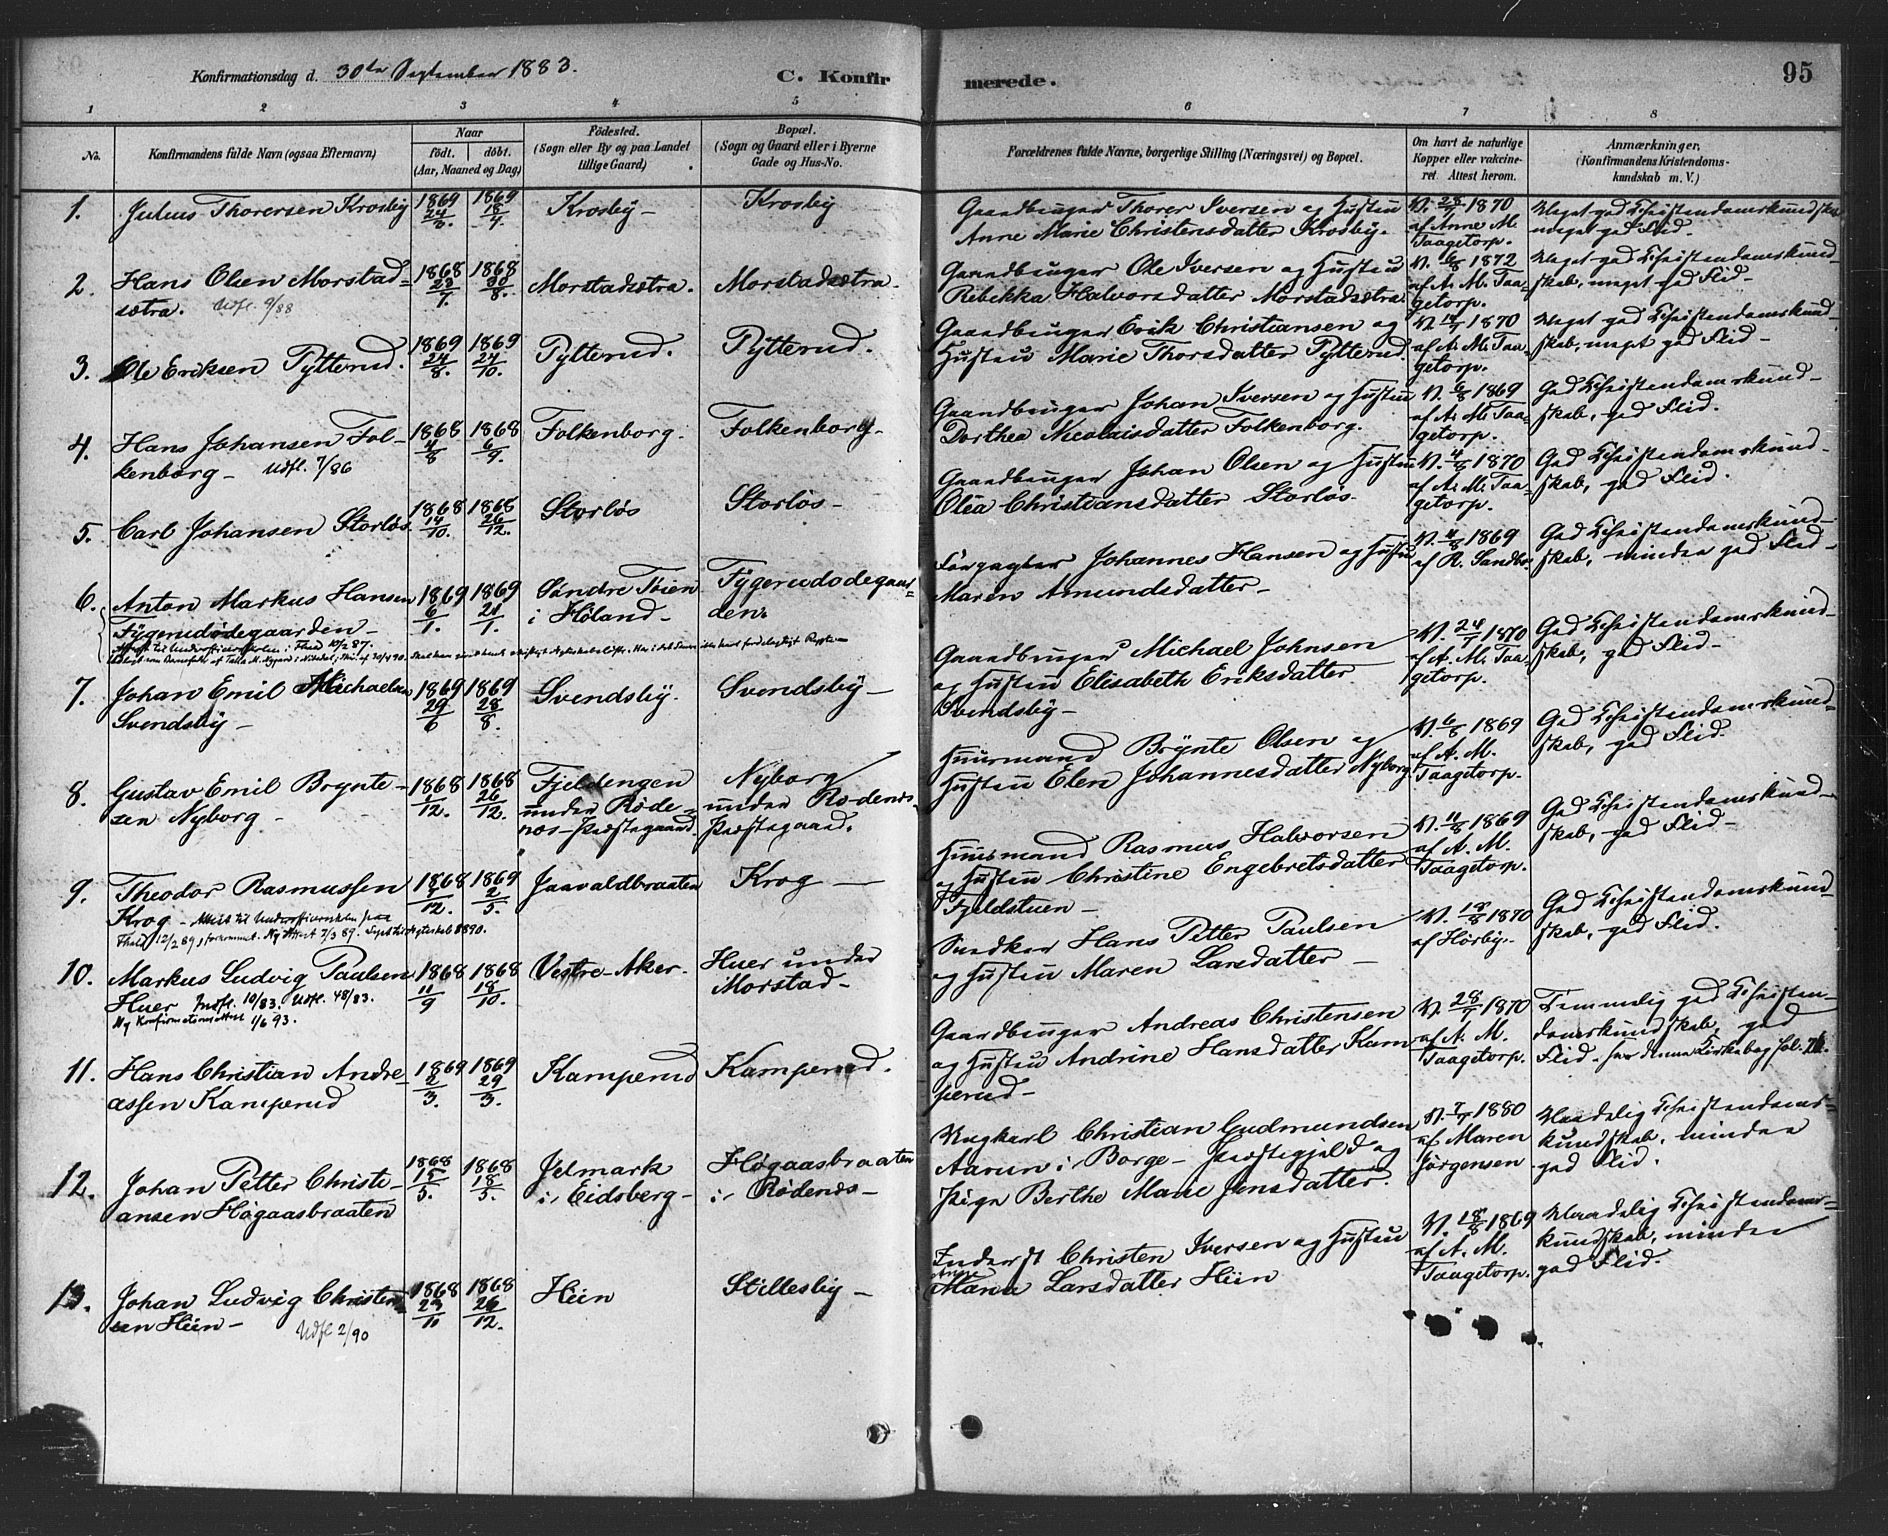 Konfirmationsdag d. 30te September 1883.
C. Konfirmerede.
95
1 2 3 4 5 6 7 8
No.
Konfirmandens fulde Navn (ogsaa Efternavn)
Naar
født. døbt.
(Aar, Maaned og Dag)
Fødested.
(Sogn eller By og paa Landet
tillige Gaard)
Bopæl.
(Sogn og Gaard eller i Byerne
Gade og Hus-No.
Forældrenes fulde Navne, borgerlige Stilling (Næringsvei) og Bopæl.
Om havt de naturlige
Kopper eller vakcine-
ret. Attest herom.
Anmærkninger,
(Konfirmandens Kristendoms-
kundskab m. V.)
1. Julius Thorersen Krosby
1869 1869 18/4
Krosby – Krosby
Gaardbruger Thorer Iversen og Hustru
Anne Marie Christensdatter Krosby.
1870
af Anne M.
Taagetorp.
Meget god Christendomskundskab
meget god Flid.
2. Hans Olsen Morstad=
sætra. Udfl. 9/88
1868 1868 30/8.
Morstadsætra. Morstadsætra.
Gaardbruger Ole Iversen og Hustru
Rebekka Halvorsdatter Morstadsætra
V. 6/8 1872
af A. M. Taa-
getorp.
Meget god Christendomskund-
skab, meget god Flid –
3. Ole Eriksen Pytterud.
1869 24/8. 1869 24/10.
Pytterud. Pytterud.
Gaardbruger Erik Christiansen og
Hustru Marie Thorsdatter Pytterud.
1870
af A. M. Taa-
getorp.
Meget god Christendomskund-
skab, meget god Flid –
4. Hans Johansen Fol-
kenborg – Udfl. 7/86
1868 4/8 1868 6/9.
Folkenborg. Folkenborg.
Gaardbruger Johan Iversen og Hustru
Dorthea Nicolaisdatter Folkenborg.
V. 6/8 1869
af A. M. Taa-
getorp.
God Christendomskund-
skab, god Flid.
5. Carl Johansen Storløs
1868 14/10. 1868 26/12.
Storløs Storløs –
Gaardbruger Johan Olsen og Hustru
Olea Christiansdatter Storløs.
V. 4/8 1870
af A. M. Taa-
getorp.
God Christendomskund-
skab, god Flid.
6. Anton Markus Hansen
Tygerudødegaarden –
1869 6/1. 1869 21/1.
Søndre Toien
i Høland –
Tygerudødegaar=
den.
Johannes Hansen og Hustru
Maren Amundsdatter –
V. 4/8 1869
af R. Sandbo.
God Christendomskund-
skab, mindre god Flid –
7. Johan Emil Michaelsen
Svendsby –
1869 29/6 1869 28/8.
Svendsby. Svendsby –
Gaardbruger Michael Johnsen
og Hustru Elisabeth Eriksdatter
Svendsby –
V. 24/7 1870
af A. M. Taa-
getorp.
God Christendomskund-
skab, god Flid –
8. Gustav Emil Brynte-
sen Nyborg –
1868 1/12. 1868 26/12.
Fjeldengen
under Røde-
nes-Præstegaard.
Nyborg
under Rødenes
Præstegaard.
Huusmand Brynte Olsen og
Hustru Elen Johannesdatter Nyborg.
V. 6/8 1869
af A. M.
Taagetorp.
God Christendomskund=
skab, god Flid.
9. Theodor Rasmussen
Krog – Attest til Underofficerskolen paa
12/2 89, forkommet. Ny Attest 7/3 89.
1868 1/12. 1869 2/5.
Jaavaldbraaten Krog –
Huusmand Rasmus Halvorsen
og Hustru Christine Engebretsdatter
Fjeldstuen –
V. 11/8 1869
af A. M.
Taagetorp.
God Christendomskund-
skab, god Flid –
10. Markus Ludvig Paulsen
Huer Indfl. 10/83. Udfl. 48/83.
Ny Konfirmationsattest 1/6 93.
1868 11/9 1868 18/10.
Vestre-Aker. Huer under
Morstad –
Snedker Hans Petter Paulsen
og Hustru Maren Larsdatter –
V. 18/8 1870
af Hørby.
God Christendomskund-
skab, god Flid.
11. Hans Christian Andre-
assen Kamperud
1869 2/3. 1869 29/3.
Kamperud Kamperud.
Gaardbruger Andreas Christensen
og Hustru Andrine Hansdatter Kam
perud –
V. 28/7 1870
af A. M.
Taagetorp.
Temmelig god Christen-
domskundskab, god
Flid.
12. Johan Petter Christi-
ansen Høgaasbraaten
1868 15/5. 1868 18/5.
Jelmark
i Eidsberg –
Høgaasbraaten
i Rødenes –
Ungkarl Christian Gudmundsen
Aarum i Borge – Præstegjeld og
Pige Berthe Marie Jensdatter.
1880
af Maren
Jørgensen
Maadelig Christendoms-
kundskab, mindre
god Flid.
13. Johan Ludvig Christen
sen Hiin – Udfl 2/90
1868 23/11 1868 26/12.
Hiin Stillesby –
Inderst Christen Iversen og Hustru
Maria Larsdatter Hiin
V. 18/8 1869
af A. M.
Taagetorp.
Maadelig Christendoms-
kundskab, mindre
god Flid.